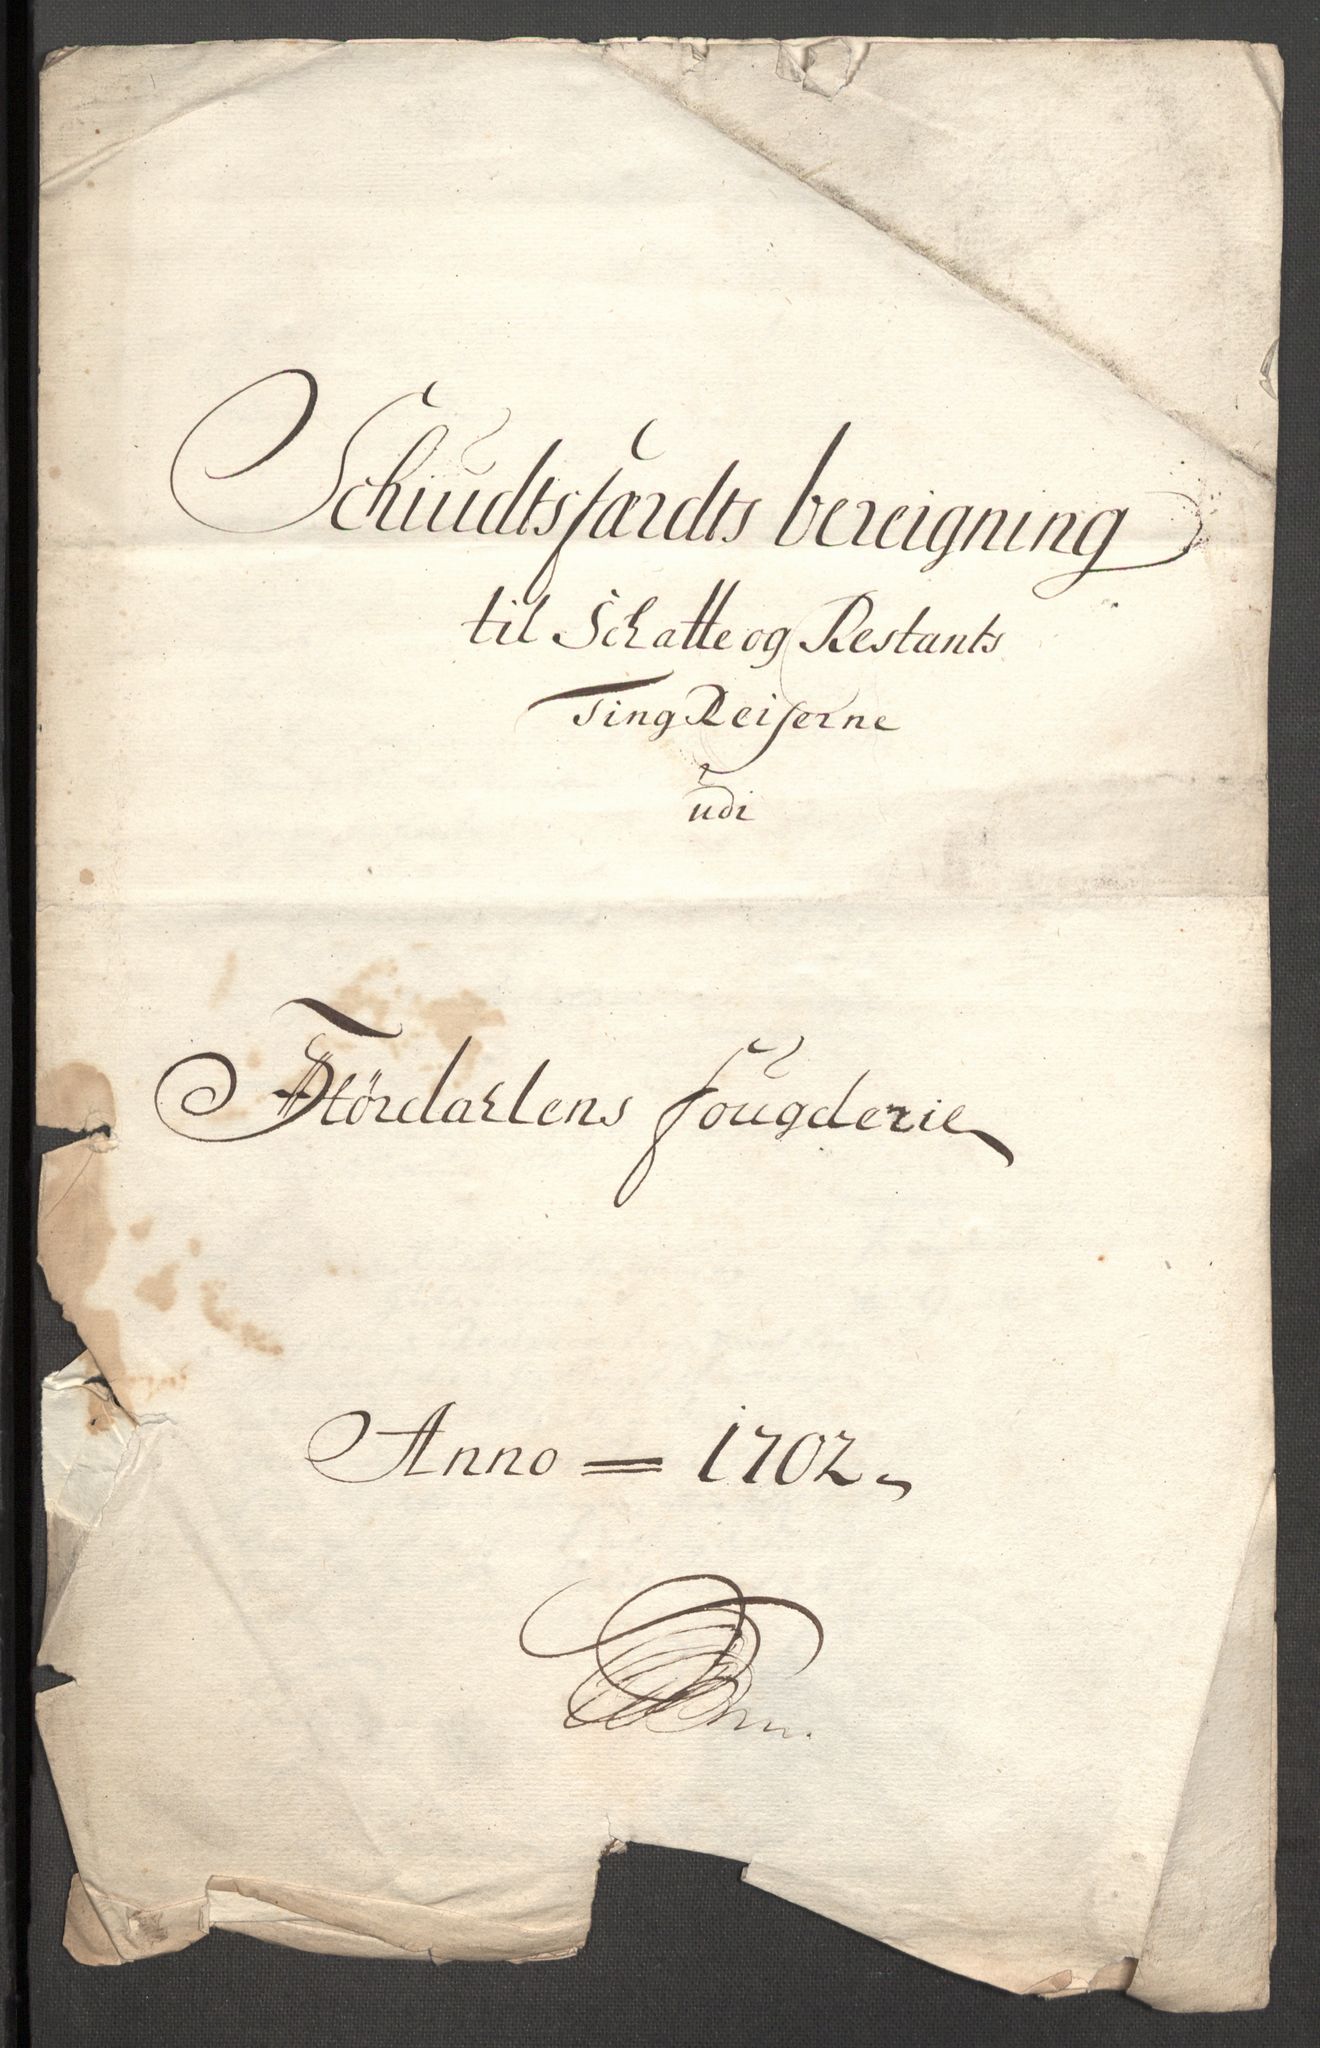 Schiudtsfærdts bereigning
til Schatte og Restants
Ting Reiserne
udi
Størdahlens fougderie
Anno = 1702